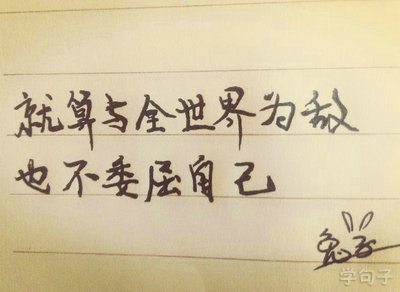 就算与全世界为敌
也不委屈自己
学句子